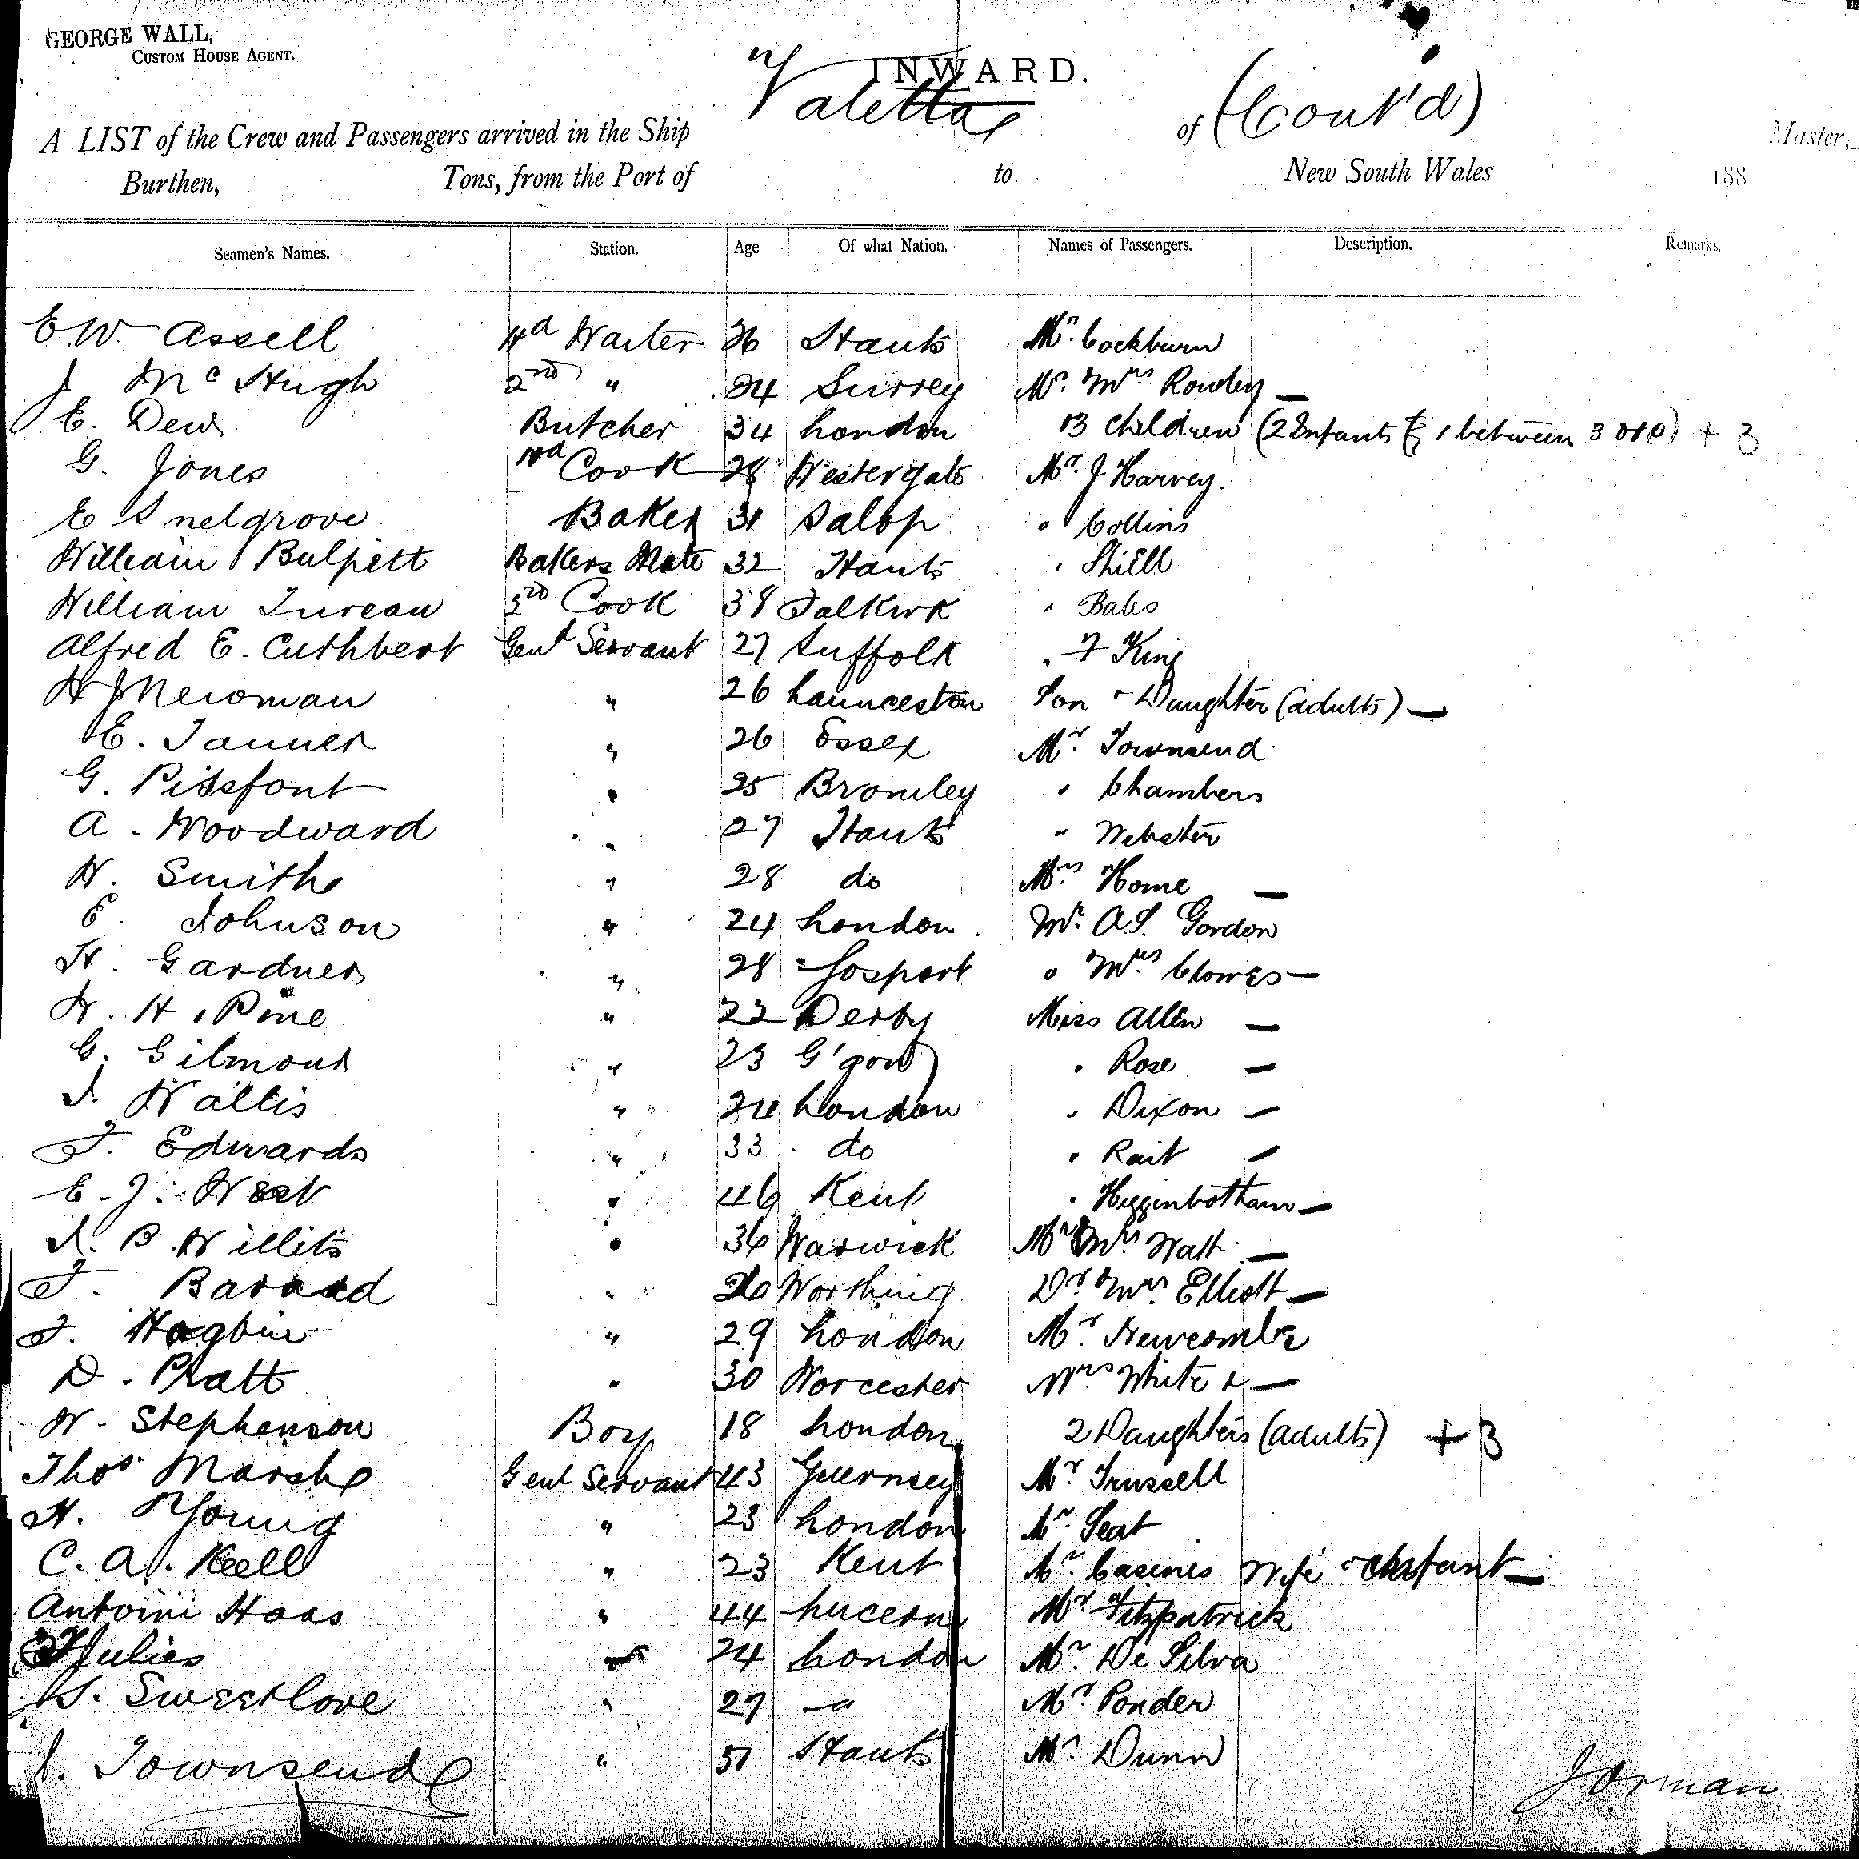 GEORGE WALL,
CUSTOM HOUSE AGENT.
INWARD.
A LIST of the Crew and Passengers arrived in the Ship Valetta of (Cont'd) Master,
Burthen, Tons, from the Port of to New South Wales 188
Seamen's Names. Station. Age Of what Nation. Names of Passengers. Description. Remarks.
E. W. Assell Hd Waiter 26 Hants Mr. Cockburn
J McHugh 2nd " 24 Surrey Mr. Mrs Rowley —
E. Dew Butcher 34 London 3 children (2 Infants & 1 between 3 ) + 3
G. Jones Cook 28 Westergate Mr J Harvey.
E Snelgrove Baker 31 Salop " Collins
William Bulpitt Bakers Mate 32 Hants " Shiell
William Cook 38 Falkirk " Bales
Alfred E. Cuthbert Genl Servant 27 Suffolk " F King
H J Newman " 26 Launceston Son & Daughter (adults) —
E. Tanner " 26 Essex Mr. Townsend
G. " 25 Bromley " Chambers
A. Woodward " 27 Hants " Webster
H. Smith " 28 do Mrs Home —
E. Johnson " 24 London Mr. A. S. Gordon
H. Gardner " 28 Gosport " Mrs Clowes —
H. H. Pine " 22 Derby Miss Allen —
G. Gilmour " 23 G'gow " Rose —
J. Wallis " 24 London " Dixon —
F. Edwards " 33 do " Rait —
E. J. West " 46 Kent " Higginbotham —
J. B. Willits " 36 Warwick Mr Mrs Watt —
F. " 26 Worthing Dr & Mrs Elliott —
F. Hogbin " 29 London Mr. Newcombe
D. Pratt " 30 Worcester Mrs White & —
W. Stephenson Boy 18 London 2 Daughters (adults) + 3
Thos Marsh Genl Servant 43 Guernsey Mr Trussell
H. Young " 23 London Mr. Seat
C. A. Keell " 23 Kent Mr. Wife & Infant —
Antoini Haas " 44 Lucerne Mr Fitzpatrick
Julies " 24 London Mr. De Silva
Sweetlove " 27 Mr Ponder
J. Townsend " 51 Hants Mr. Dunn
J Orman